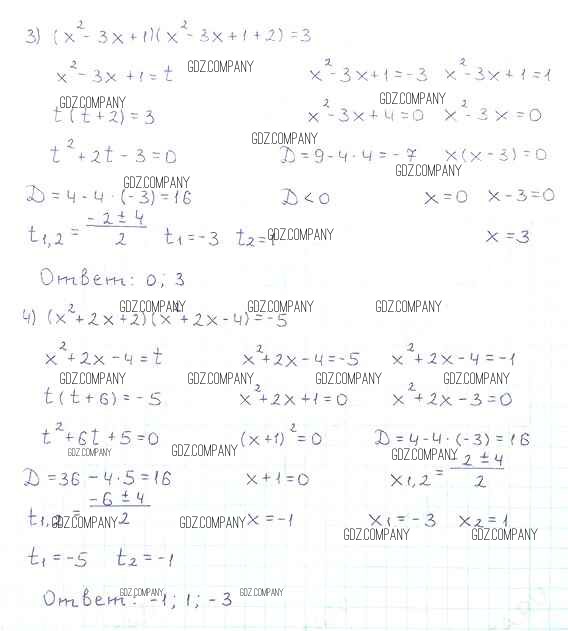 3) (x² - 3x + 1)(x² - 3x + 1 + 2) = 3
x² - 3x + 1 = t
GDZ.COMPANY
x² - 3x + 1 = -3 x² - 3x + 1 = 1
GDZ.COMPANY
GDZ.COMPANY
t(t + 2) = 3
x² - 3x + 4 = 0 x² - 3x = 0
GDZ.COMPANY
t² + 2t - 3 = 0
D = 9 - 4 · 4 = -7 x(x - 3) = 0
GDZ.COMPANY
GDZ.COMPANY
D = 4 - 4 · (-3) = 16
D < 0
x = 0 x - 3 = 0
t1,2 = (-2 ± 4)/2 t1 = -3 t2 = 1
GDZ.COMPANY
x = 3
Ответ: 0; 3
GDZ.COMPANY GDZ.COMPANY GDZ.COMPANY
4) (x² + 2x + 2)(x² + 2x - 4) = -5
x² + 2x - 4 = t
x² + 2x - 4 = -5 x² + 2x - 4 = -1
GDZ.COMPANY GDZ.COMPANY GDZ.COMPANY GDZ.COMPANY
t(t + 6) = -5
x² + 2x + 1 = 0 x² + 2x - 3 = 0
t² + 6t + 5 = 0
(x + 1)² = 0 D = 4 - 4 · (-3) = 16
GDZ.COMPANY GDZ.COMPANY GDZ.COMPANY
D = 36 - 4 · 5 = 16
x + 1 = 0
x1,2 = (-2 ± 4)/2
t1,2 = (-6 ± 4)/2
x = -1
x1 = -3 x2 = 1
GDZ.COMPANY GDZ.COMPANY GDZ.COMPANY GDZ.COMPANY
t1 = -5 t2 = -1
Ответ: -1; 1; -3
GDZ.COMPANY GDZ.COMPANY